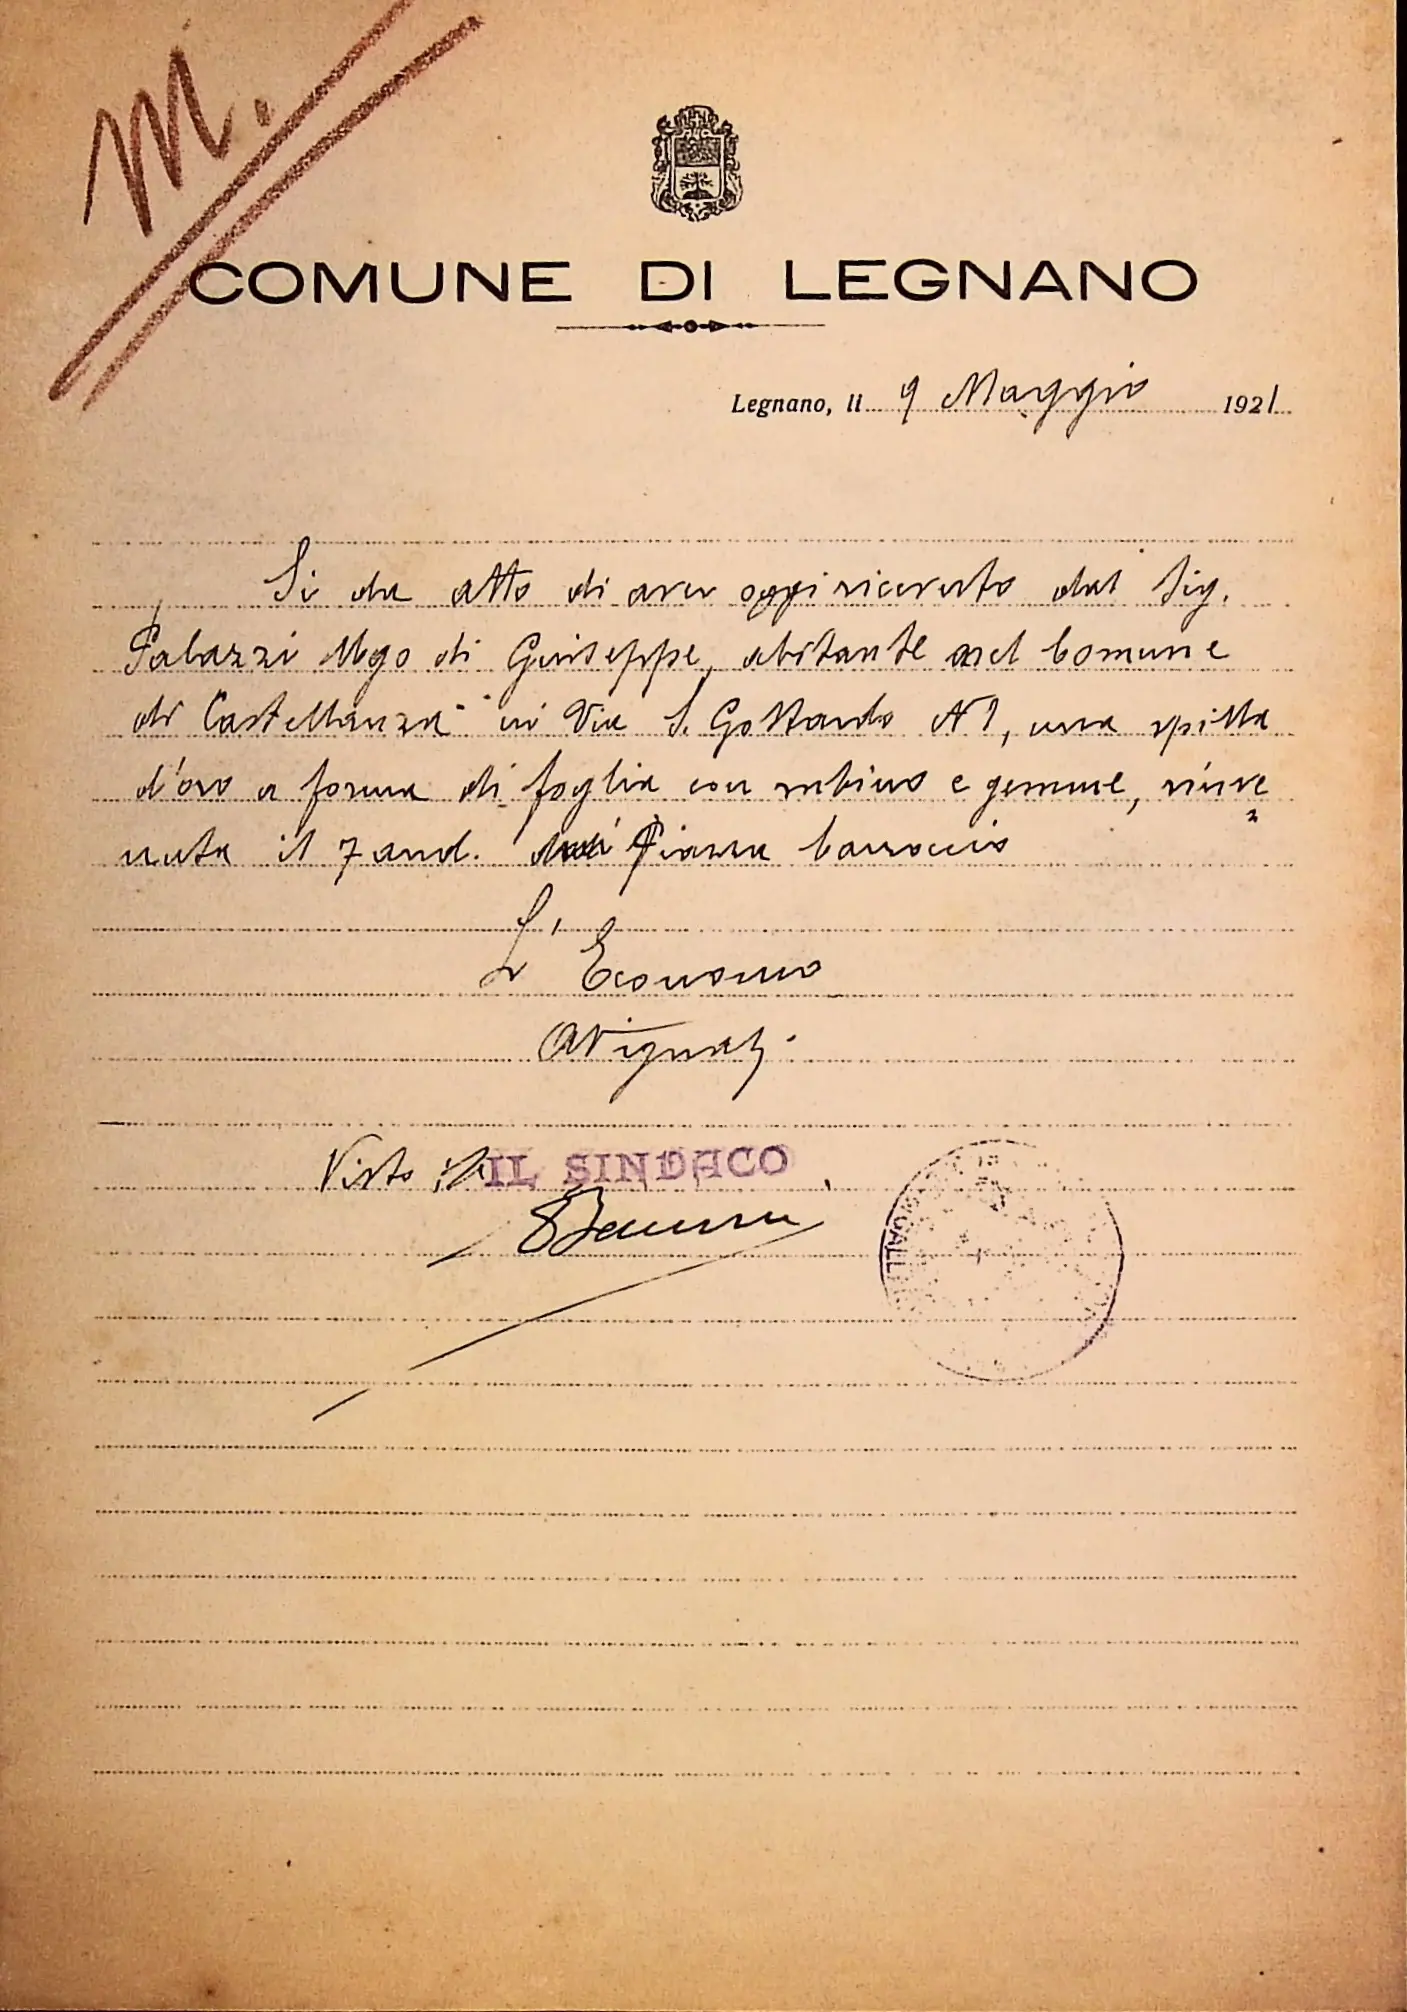 M.
COMUNE DI LEGNANO
Legnano, li 9 Maggio 1921
Si da atto di aver oggi ricevuto dal Sig.
Palazzi Ugo di Giuseppe, abitante nel Comune
di Castellanza in Via S. Gottardo N 1, una spilla
d'oro a forma di foglia con rubino e gemme, rinve
nuta il 7 and. Piazza Carroccio
L'Economo
Visto IL SINDACO